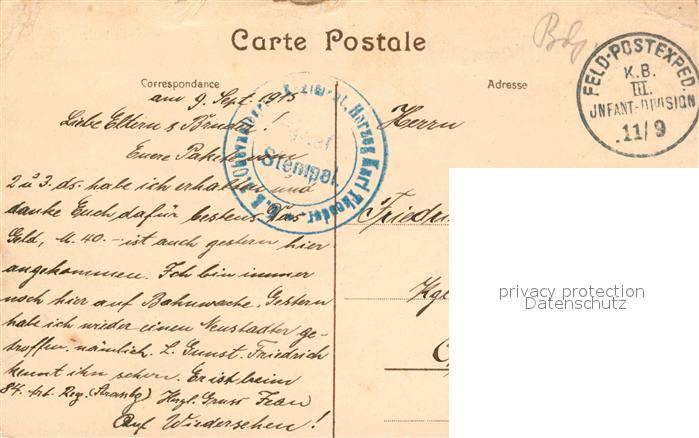 Carte Postale
Correspondance
Adresse
FELD-POSTEXPED.
K.B.
III.
JNFANT.-DIVISION
11/9
am 9. Sept. 1915
Liebe Eltern & Brüder!
Herrn
Stempel
Herzog Karl Theodor
Euere Pakete vom
2 u 3. ds. habe ich erhalten und
danke Euch dafür bestens. Das
Geld, M. 40.- ist auch gestern hier
angekommen. Ich bin immer
noch hier auf Bahnwache. Gestern
habe ich wieder einen Neustadter ge-
troffen. nämlich. L. Gunst. Friedrich
kennt ihn schon. Er ist beim
84. Art. Reg. (Strassbg) Herzl. Gruss
Auf Wiedersehen!
Friedri
Kgl
privacy protection
Datenschutz